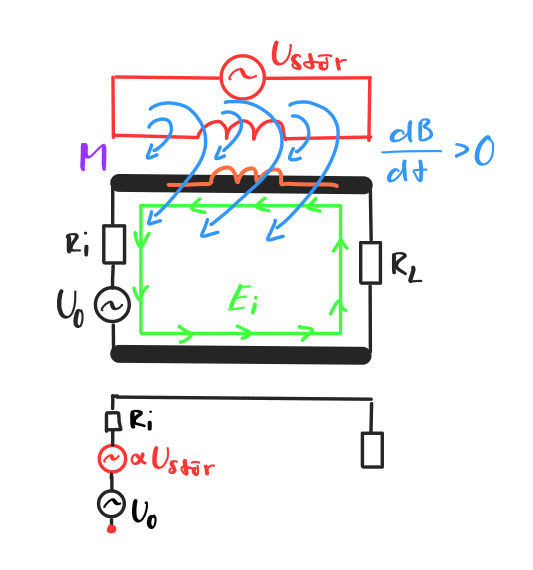 Ustör
M
dB
dt
>0
Ri
RL
U0
Ei
Ri
αUstör
U0